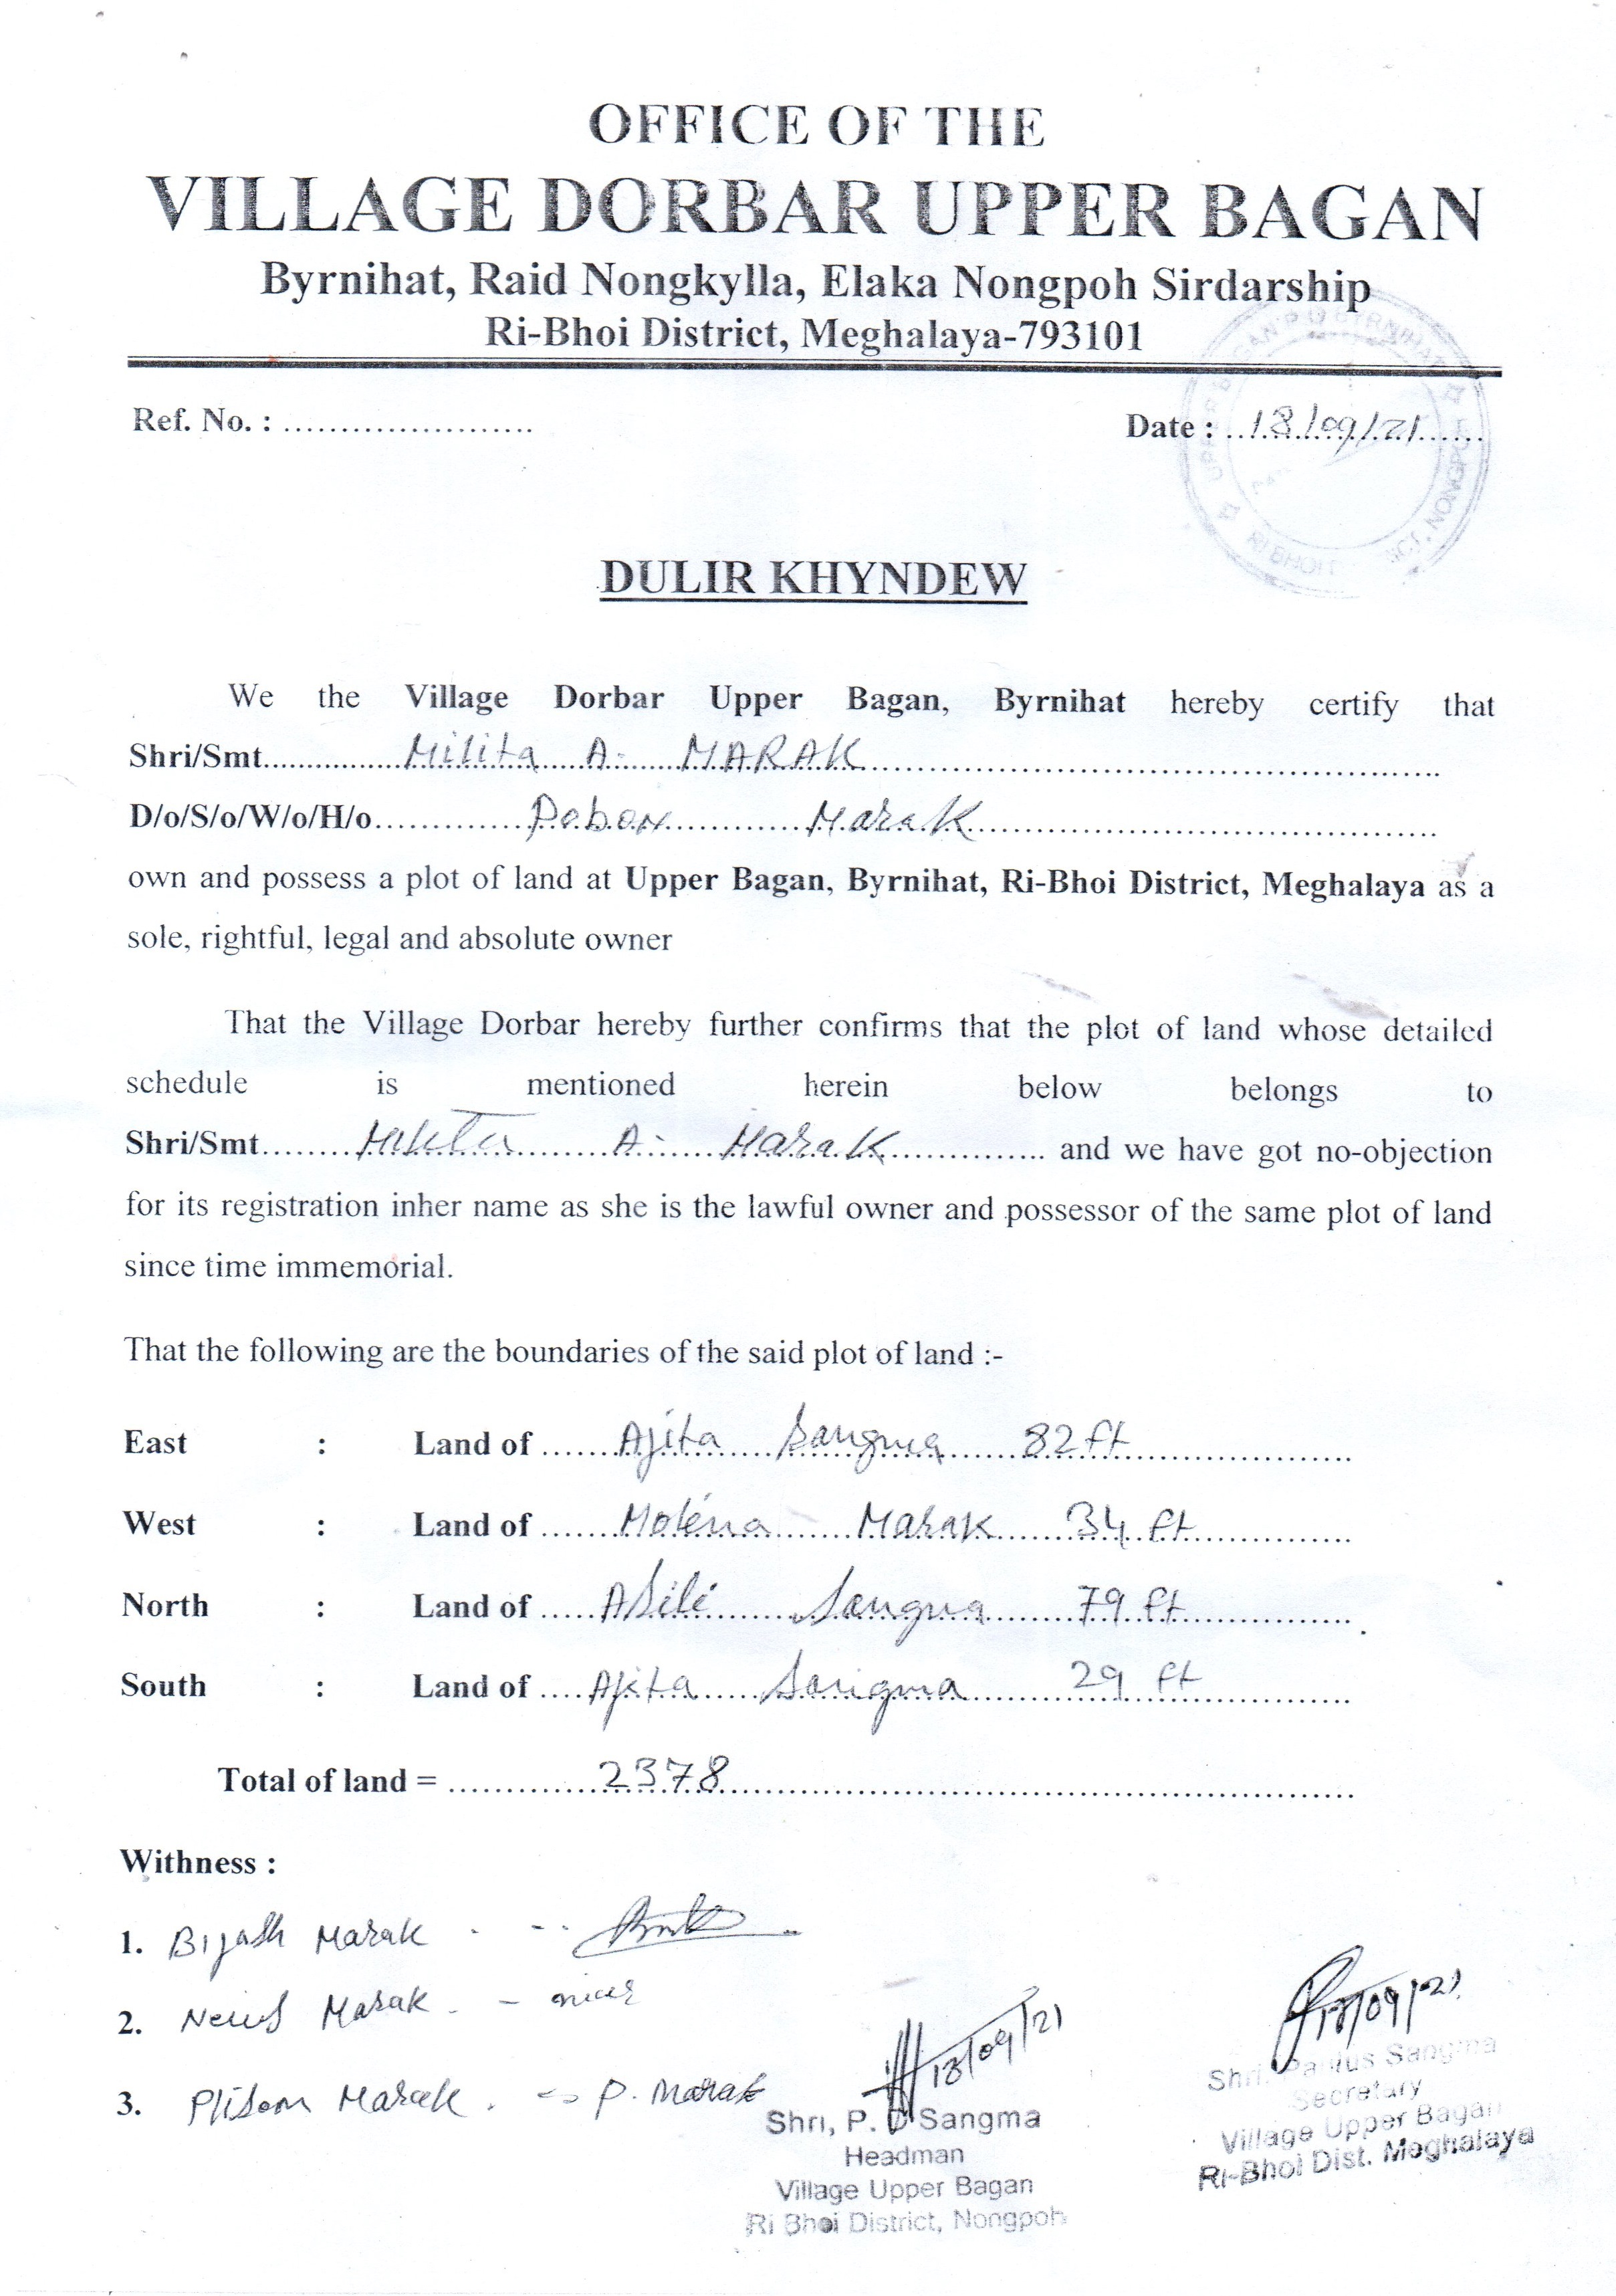 OFFICE OF THE
VILLAGE DORBAR UPPER BAGAN
Byrnihat, Raid Nongkylla, Elaka Nongpoh Sirdarship
Ri-Bhoi District, Meghalaya-793101
Ref. No. : ........................ Date : ...18/09/21......
DULIR KHYNDEW
We the Village Dorbar Upper Bagan, Byrnihat hereby certify that
Shri/Smt...............Milita A. MARAK......................
D/o/S/o/W/o/H/o...............Pobon Marak......................
own and possess a plot of land at Upper Bagan, Byrnihat, Ri-Bhoi District, Meghalaya as a
sole, rightful, legal and absolute owner
That the Village Dorbar hereby further confirms that the plot of land whose detailed
schedule is mentioned herein below belongs to
Shri/Smt.........Milita A. Marak............... and we have got no-objection
for its registration inher name as she is the lawful owner and possessor of the same plot of land
since time immemorial.
That the following are the boundaries of the said plot of land :-
East : Land of .......Ajita Sangma 82 ft..................
West : Land of .......Molena Marak 34 ft..................
North : Land of .....Asili Sangma 79 ft..................
South : Land of ....Ajita Sangma 29 ft..................
Total of land = .............2378..................
Withness :
1. Bijash Marak
2. Marak
3. Plison Marak. P. Marak
18/09/21
18/09/21
Shri, P. D Sangma
Headman
Village Upper Bagan
Ri Bhoi District, Nongpoh
Shri. Paulus Sangma
Secretary
Village Upper Bagan
Ri-Bhoi Dist. Meghalaya